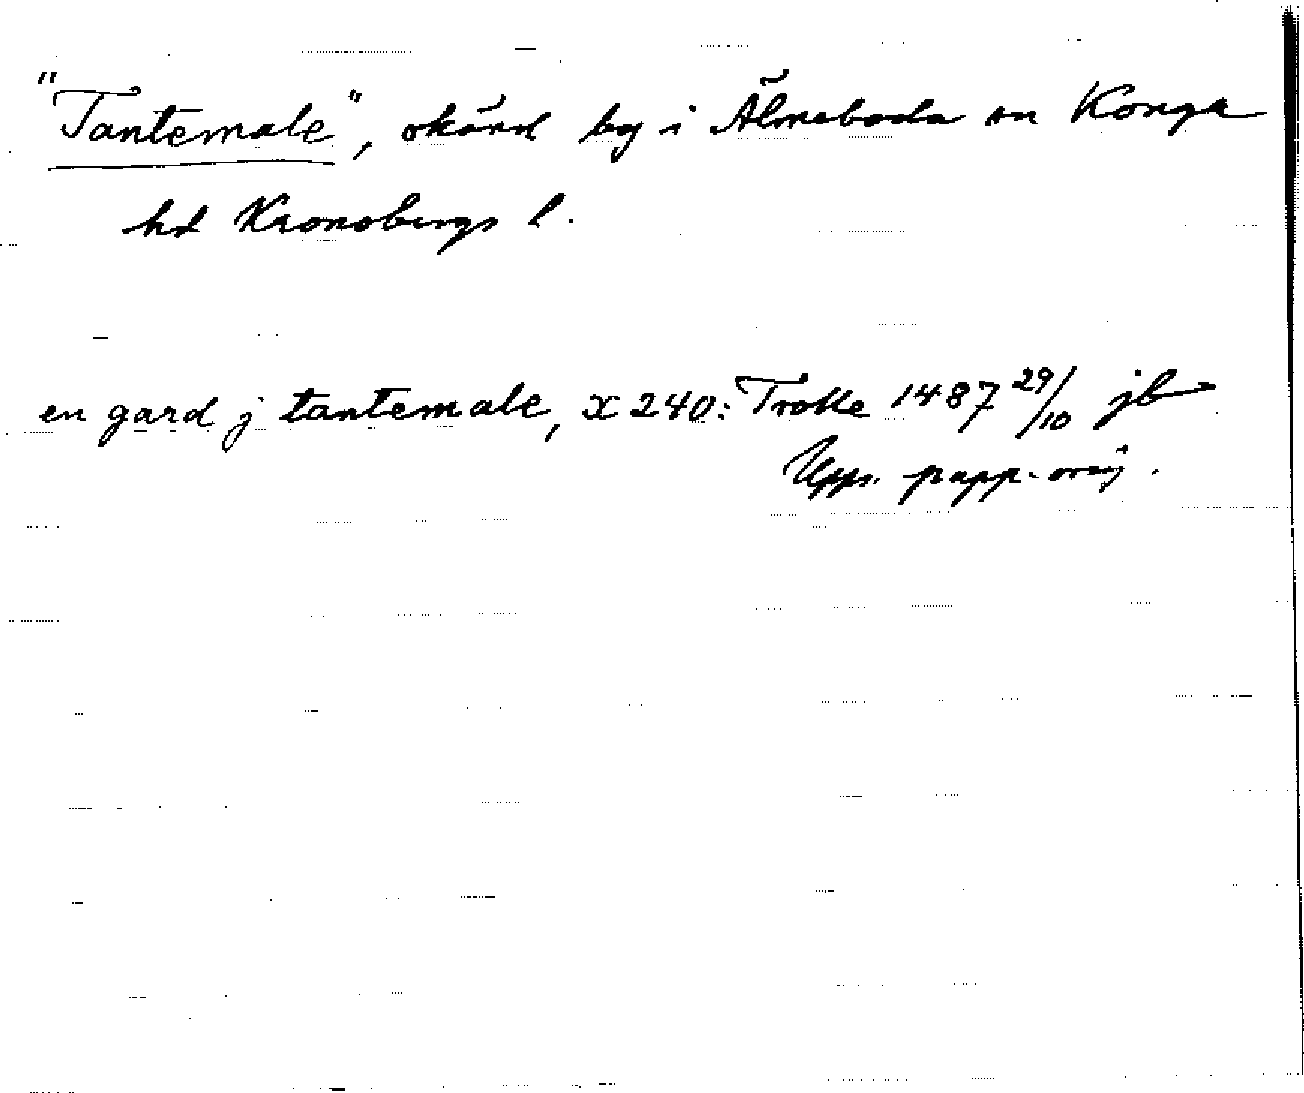 "Tantemale", okänd by i Älmeboda sn Konga
hd Kronobergs l.
en gard j tantemale, x 240: Trolle 1487 29/10 jb
Upps. papp. orig.